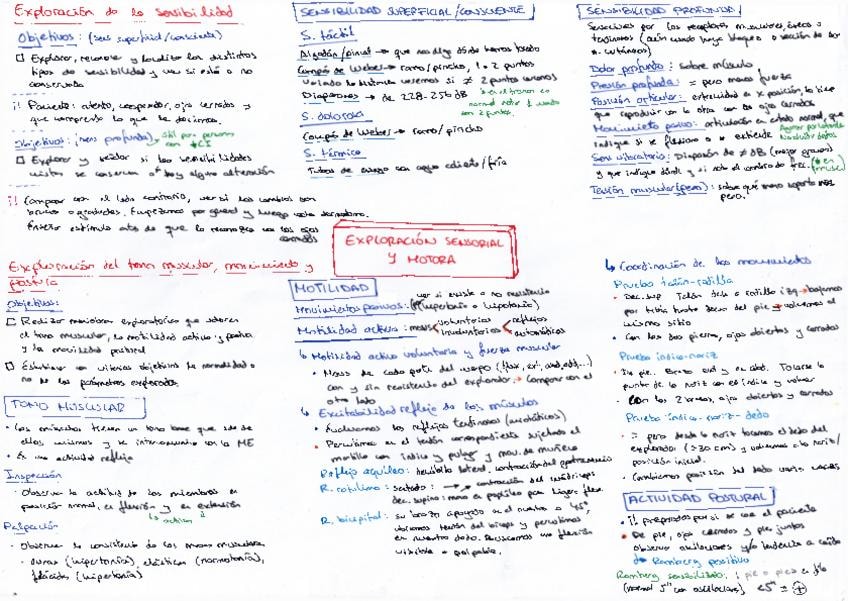 Exploración de la sensibilidad
Objetivos: (sens superficial/consciente)
Explorar, reconocer y localizar los distintos
tipos de sensibilidad y ver si está o no
conservada
¡! Paciente: atento, cooperador, ojos cerrados y
que comprenda lo que le decimos.
Objetivos: (sens profunda)
Explorar y valorar si las sensibilidades
mixtas se conservan o hay alguna alteración
¡! Comparar con el lado contrario, ver si los cambios son
bruscos o graduales. Empezamos por general y luego cada dermatoma.
Enseñar estímulo antes de que lo reconozca con los ojos
cerrados
SENSIBILIDAD SUPERFICIAL/CONSCIENTE
S. táctil
Algodón/pincel → que nos diga dónde hemos tocado
Compás de Weber → romo/pincho, 1 o 2 puntos
Diapasones → de 228-256 dB
S. dolorosa
Compás de Weber → romo/pincho
S. térmica
Tubos de ensayo con agua caliente/fría
SENSIBILIDAD PROFUNDA
Dolor profundo: sobre músculo
Presión profunda: = pero mayor fuerza
Posición articular: extremidad en x posición, la tiene
que reproducir con la otra con los ojos cerrados
Movimiento pasivo: articulación en estado normal, que
indique si se flexiona o se extiende
Sens vibratoria: Diapasón de ≠ dB (mejor graves)
Tensión muscular (peso): sobre qué mano soporta más
peso.
EXPLORACIÓN SENSORIAL
Y MOTORA
Exploración del tono muscular, movimiento y
postura
Objetivos:
Realizar maniobras exploratorias que valoren
el tono muscular, la motilidad activa y pasiva
y la motilidad postural
Establecer con criterios objetivos la normalidad o
no de los parámetros explorados.
TONO MUSCULAR
• Los músculos tienen un tono base que sale de
ellos mismos y se interconecta con la ME
• Es una actividad refleja
Inspección
• Observar la actitud de los miembros en
posición normal, en flexión y en extensión
Palpación
• Observar la consistencia de las masas musculares
• duras (hipertonía), elásticas (normotonía),
flácidas (hipotonía)
MOTILIDAD
ver si existe o no resistencia
Movimientos pasivos: (hipertonía o hipotonía)
Motilidad activa: movs voluntarios
involuntarios reflejos
automáticos
↳ Motilidad activa voluntaria y fuerza muscular
• Movs de cada parte del cuerpo (flex, ext, abd, add, ...)
con y sin resistencia del explorador. → Comparar con el
otro lado
↳ Excitabilidad refleja de los músculos
• Evaluamos los reflejos tendinosos (miotáticos)
• Percutimos en el tendón correspondiente sujetando el
martillo con índice y pulgar y mov. de muñeca
Reflejo aquíleo: decúbito lateral, contracción del gastrocnemio
R. rotuliano: sentado: → contracción del cuádriceps
dec. supino: mano en poplíteo para ligera flex.
R. bicipital: su brazo apoyado en el nuestro a 45°,
ubicamos tendón del bíceps y percutimos
en nuestro dedo. Buscamos una flexión
visible o palpable.
↳ Coordinación de los movimientos
Prueba talón-rodilla
• Dec. sup Talón dcho a rodilla izq → bajamos
por tibia hasta dorso del pie → volvemos al
mismo sitio
• Con las dos piernas, ojos abiertos y cerrados
Prueba índice-nariz
• En pie. Brazo ext y en abd. Tocarse la
punta de la nariz con el índice y volver
• Con los 2 brazos, ojos abiertos y cerrados
Prueba índice-nariz-dedo
• = pero desde la nariz tocamos el dedo del
explorador (>30 cm) y volvemos a la nariz/
posición inicial.
• Cambiamos posición del dedo varias veces
ACTIVIDAD POSTURAL
• ¡! preparados por si se cae el paciente
• De pie, ojos cerrados y pies juntos
observar oscilaciones y/o tendencia a caída
↳ Romberg positivo
Romberg sensibilizado:
(normal 5" con oscilaciones) <5" = +